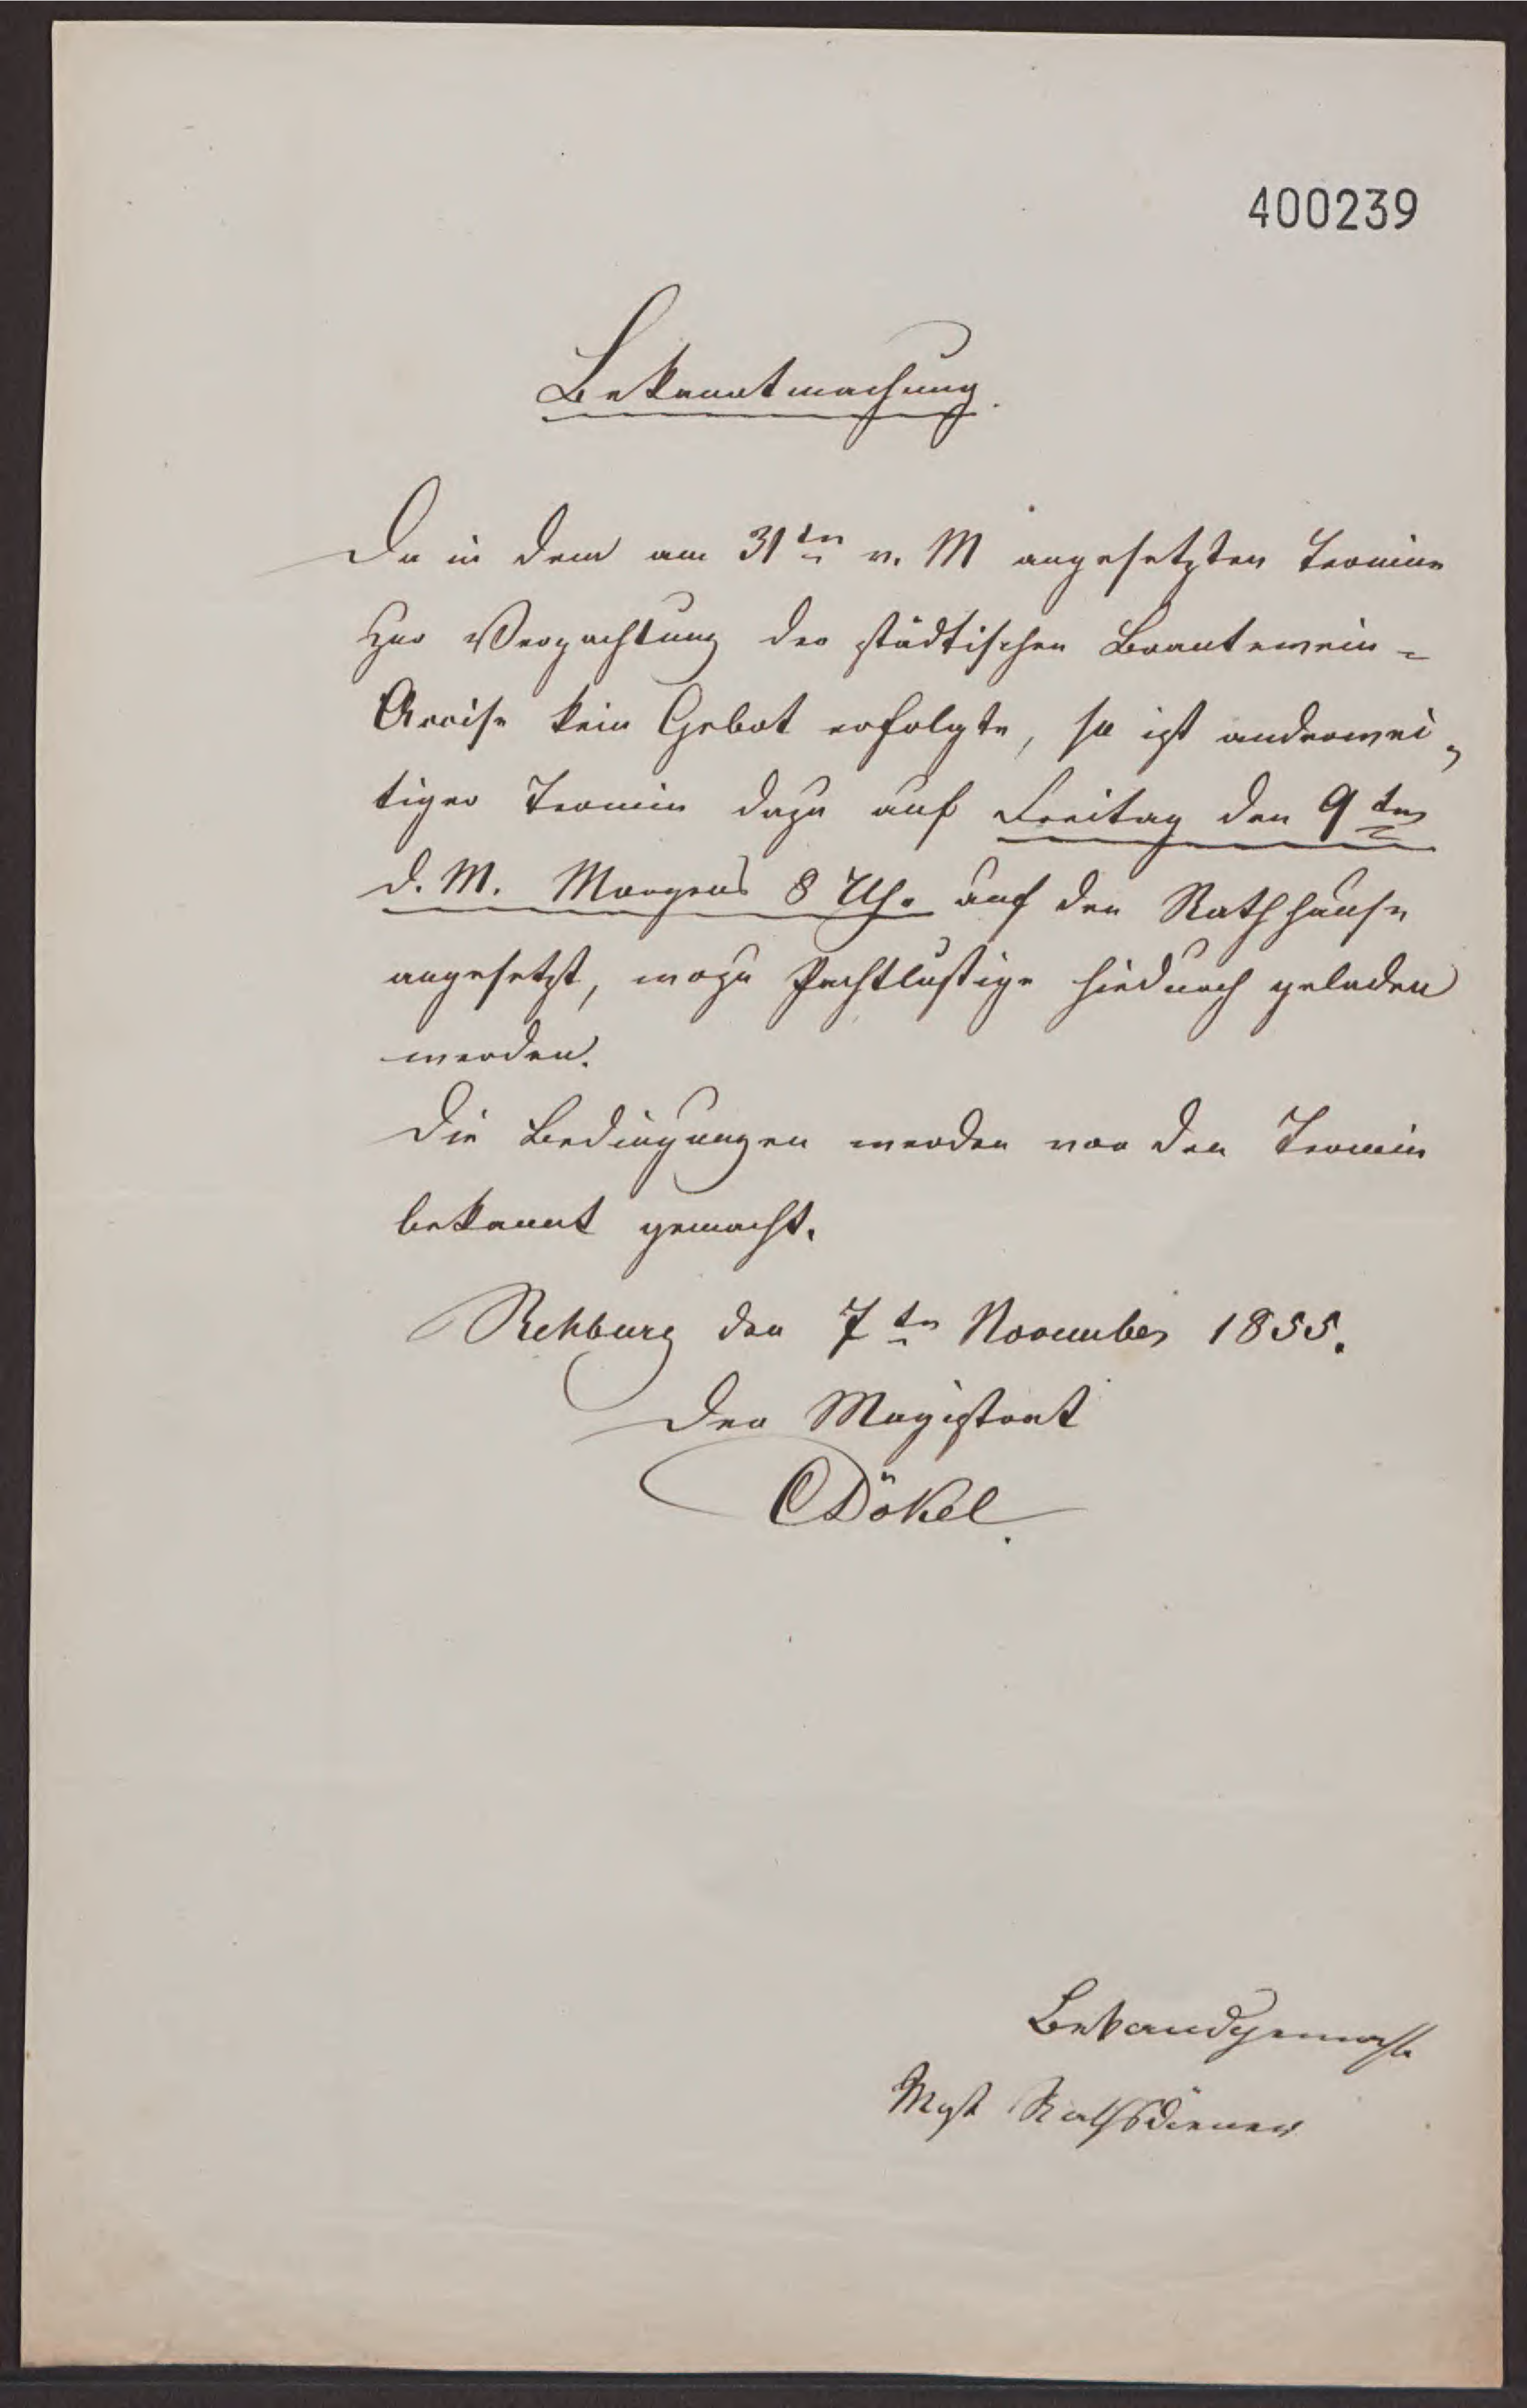 400239
Bekanntmachung.
Da in dem am 31ten v. M angesetzten Termine
zur Verpachtung der städtischen Brantewein=
Accise kein Gebot erfolgte, so ist anderwei=
tiger Termin dazu auf Freitag den 9ten
d. M. Morgens 8 Uhr auf den Rathhause
angesetzt, wozu Pachtlustige hiedurch geladen
werden.
Die Bedingungen werden vor den Termin
bekannt gemacht.
Rehburg den 7ten November 1855.
Der Magistrat
CDökel.
Bekandgemacht
Rathsdiener